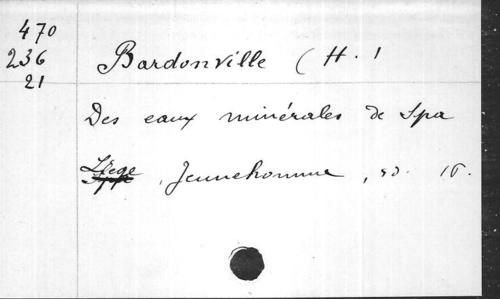 470
236
21
Bordonville (H.)
Des eaux minérales de Spa
Liège
, Jeunehomme, sd. 16.